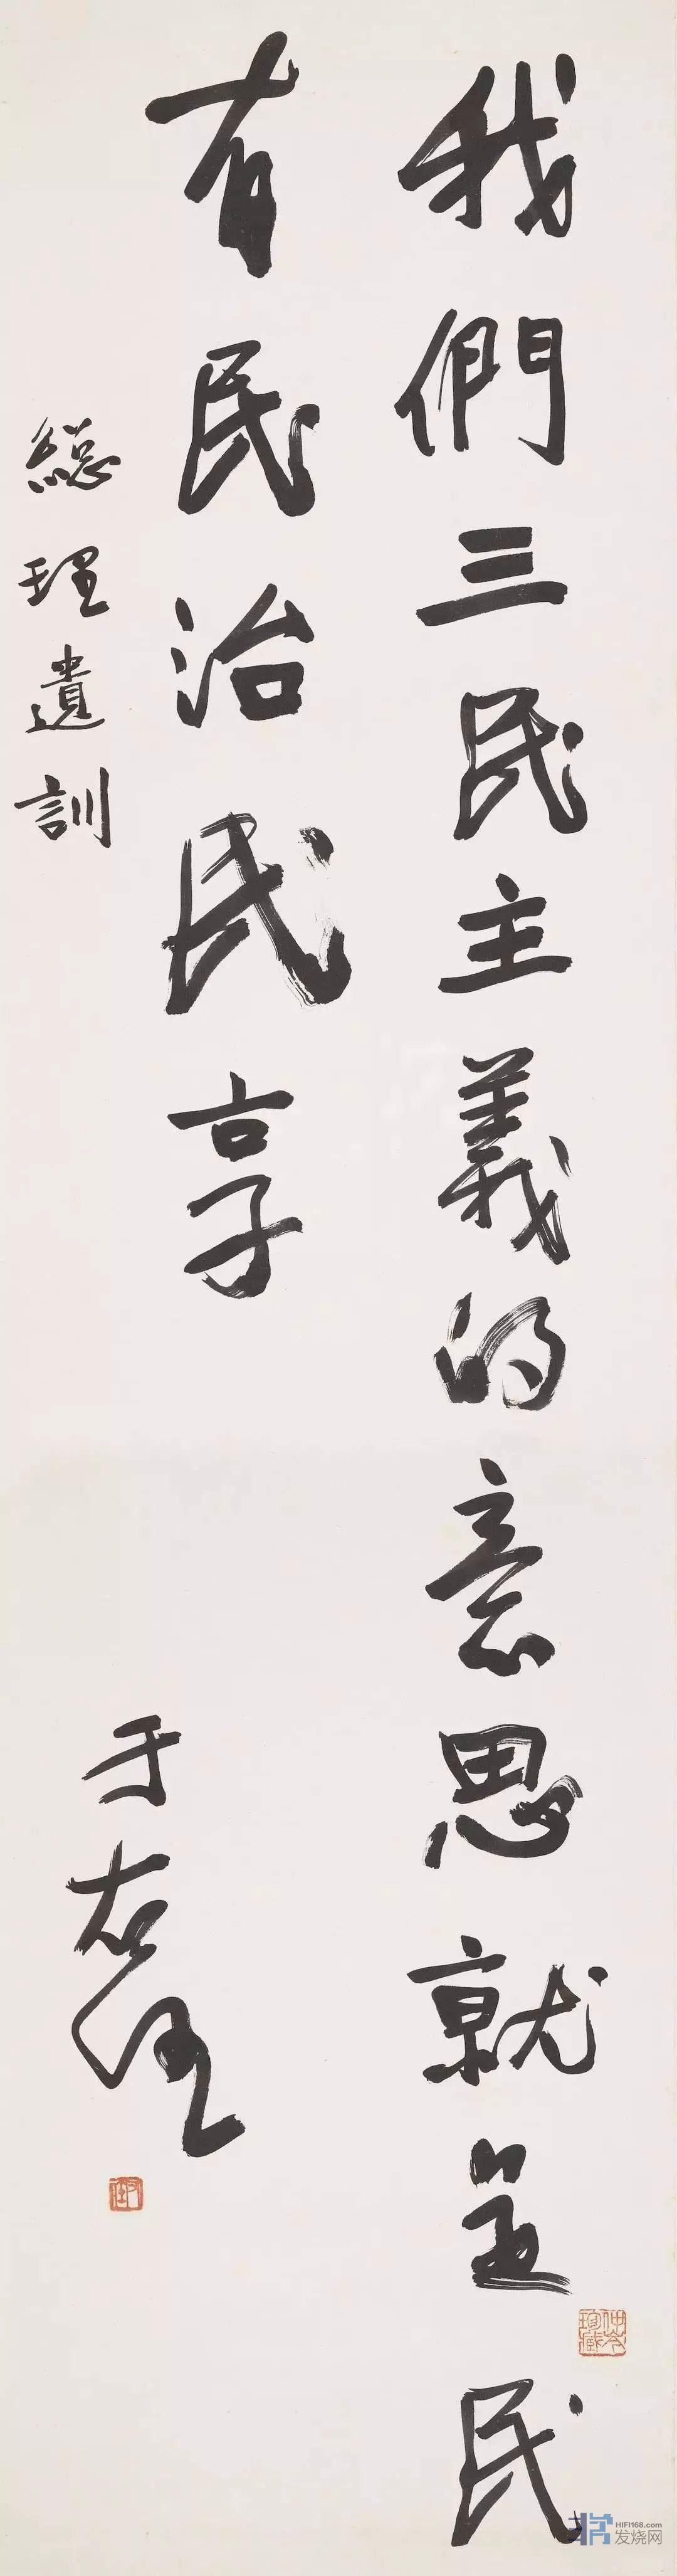 我們三民主義的意思就是民
有民治民享
總理遺訓
于右任
右任
仲岑珍藏
HIFI168.com
发烧网